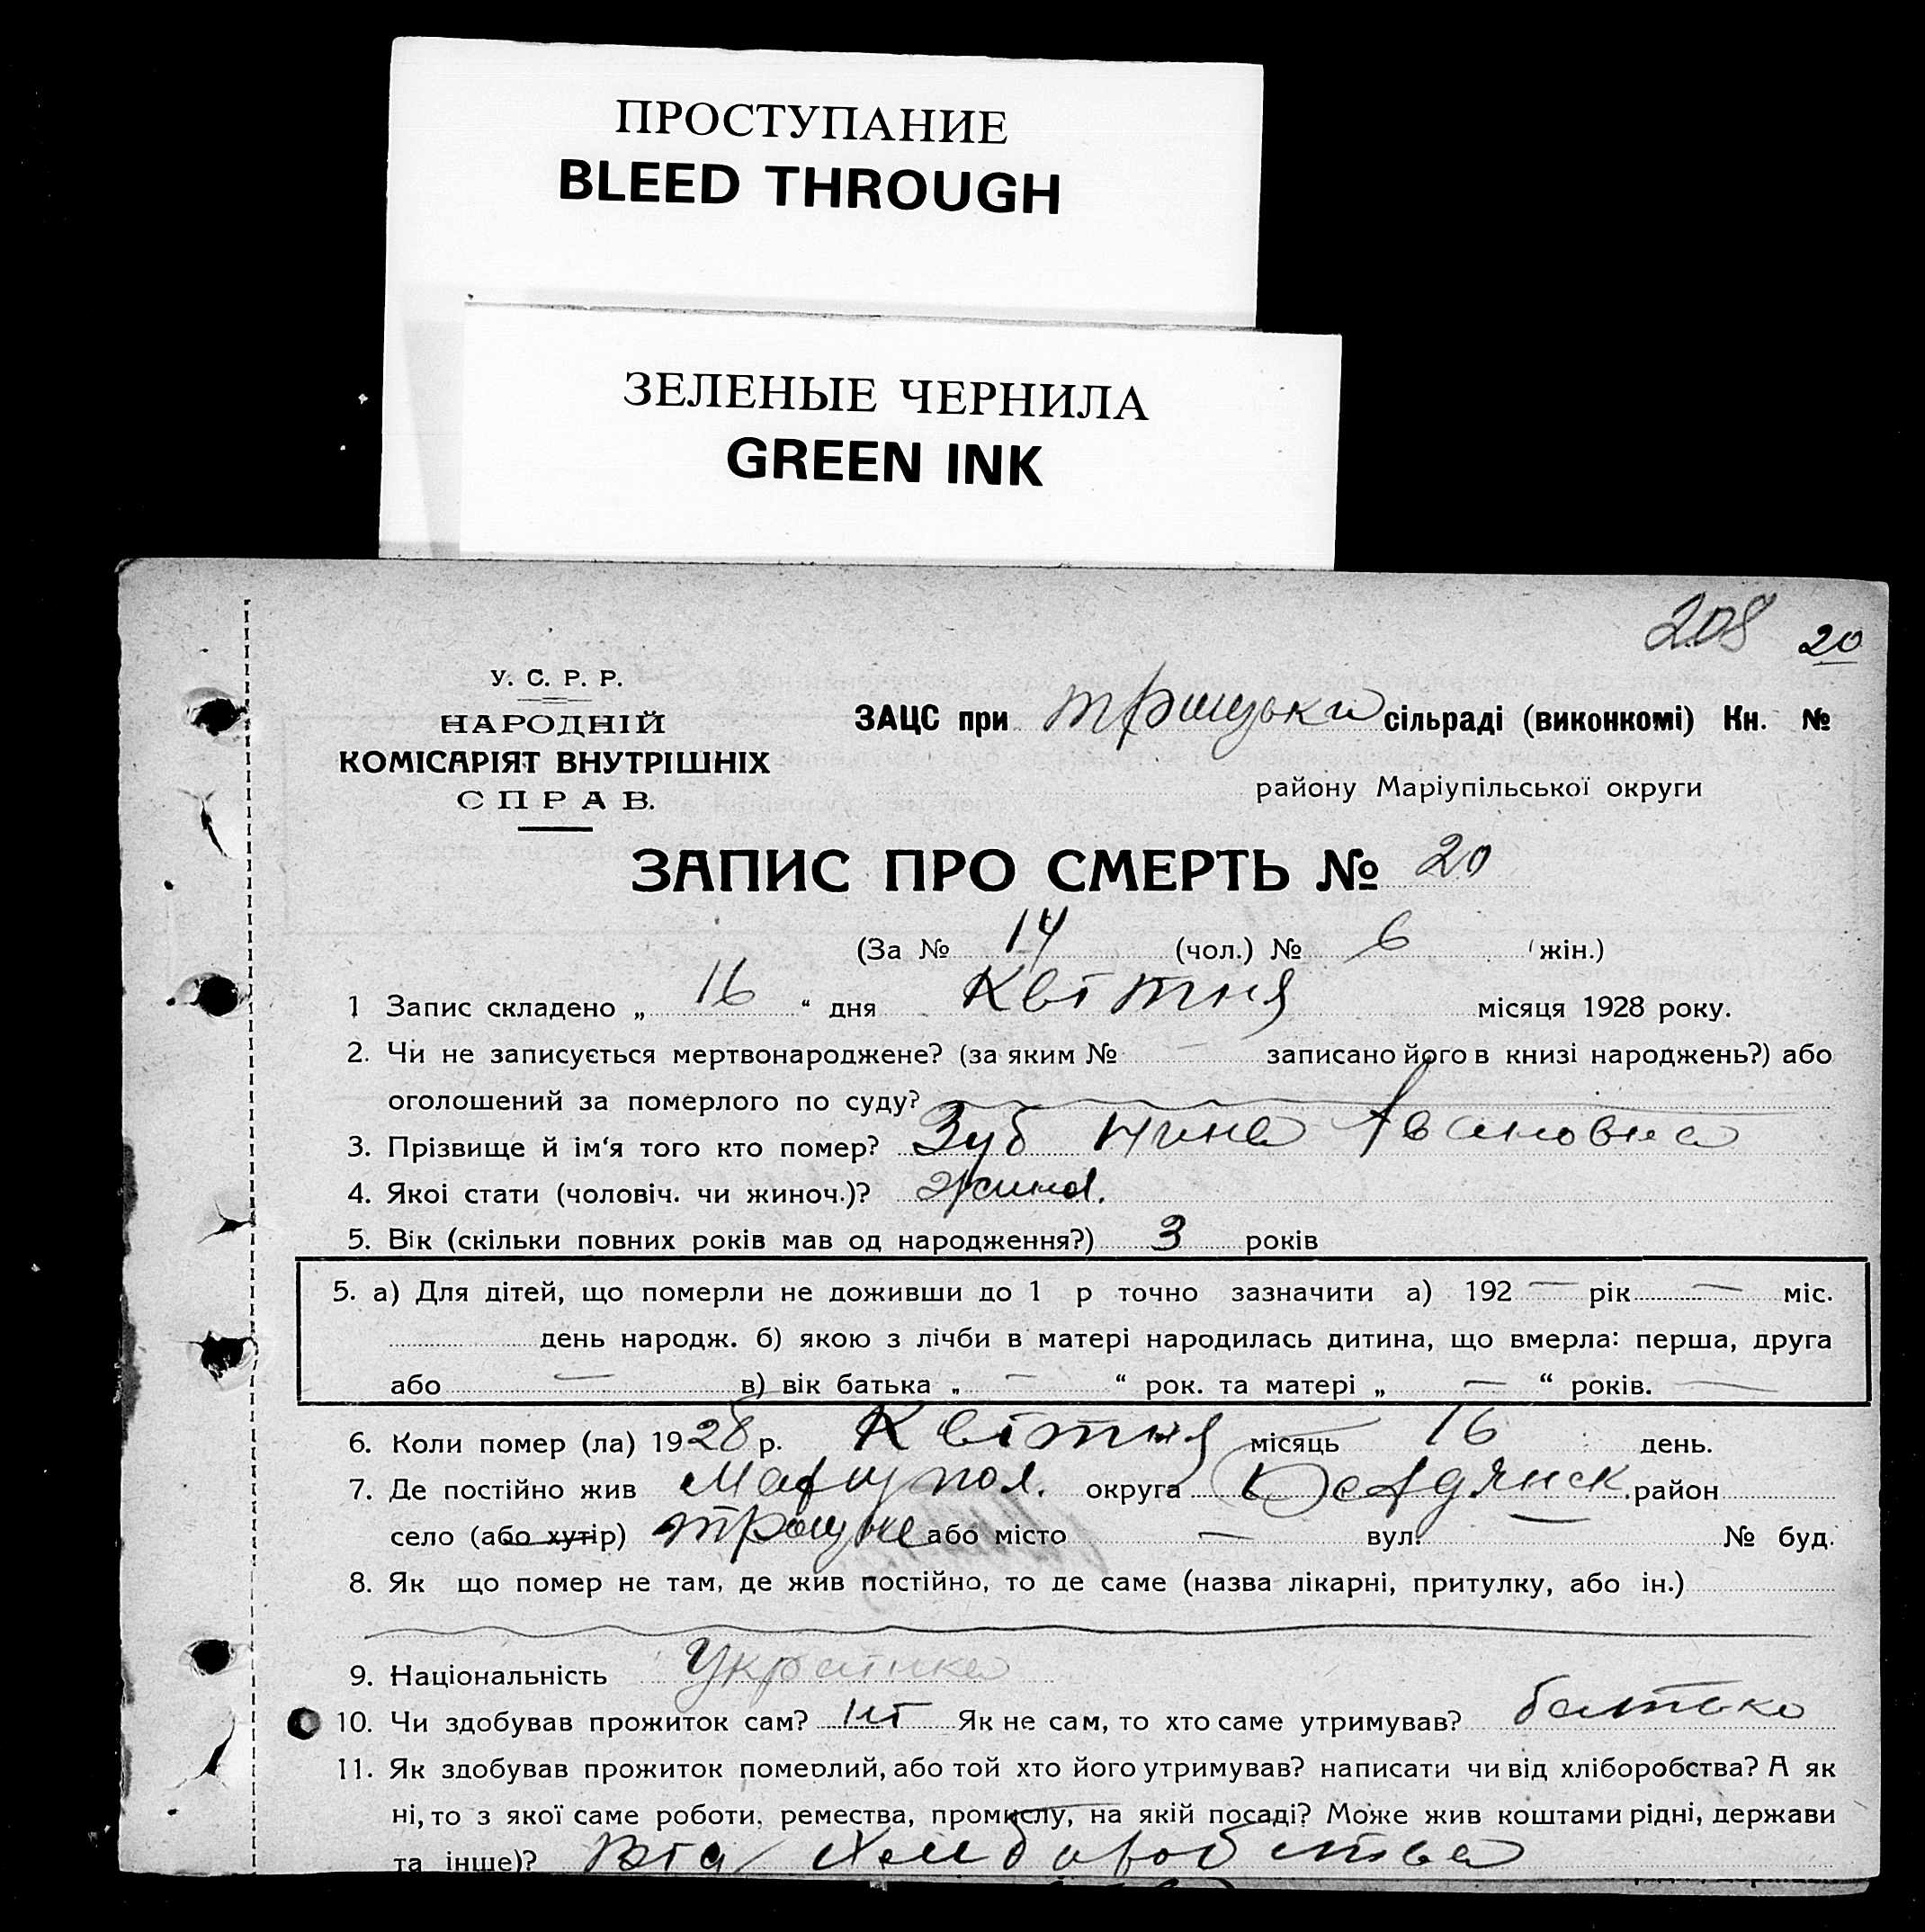 ПРОСТУПАНИЕ
BLEED THROUGH
ЗЕЛЕНЫЕ ЧЕРНИЛА
GREEN INK
208 20
У. С. Р. Р.
НАРОДНІЙ
КОМІСАРІЯТ ВНУТРІШНІХ
СПРАВ.
ЗАЦС при сільраді (виконкомі) Кн. №
району Маріупільської округи
ЗАПИС ПРО СМЕРТЬ № 20
(За № 14 (чол.) № 6 (жін.)
1 Запис складено „ 16 “ дня Квітня місяця 1928 року.
2. Чи не записується мертвонароджене? (за яким № — записано його в книзі народжень?) або
оголошений за померлого по суду?
3. Прізвище й ім‘я того кто помер? Зуб Нина Івановна
4. Якоі стати (чоловіч. чи жиноч.)? жиноч.
5. Вік (скільки повних років мав од народження?) 3 років
5. а) Для дітей, що померли не доживши до 1 р точно зазначити а) 192 — рік — міс.
день народж. б) якою з лічби в матері народилась дитина, що вмерла: перша, друга
або — в) вік батька „ — “ рок. та матері „ — “ років. —
6. Коли помер (ла) 1928 р. Квітня місяць 16 день.
7. Де постійно жив Маріупол. округа Бердянск. район
село (або хутір) або місто — вул. — № буд.
8. Як що помер не там, де жив постійно, то де саме (назва лікарні, притулку, або ін.)
9. Національність Українка
10. Чи здобував прожиток сам? ніт Як не сам, то хто саме утримував? батько
11. Як здобував прожиток померлий, або той хто його утримував? написати чи від хліборобства? А як
ні, то з якої саме роботи, ремества, промислу, на якій посаді? Може жив коштами рідні, держави
та інше)? Від Хліборобства